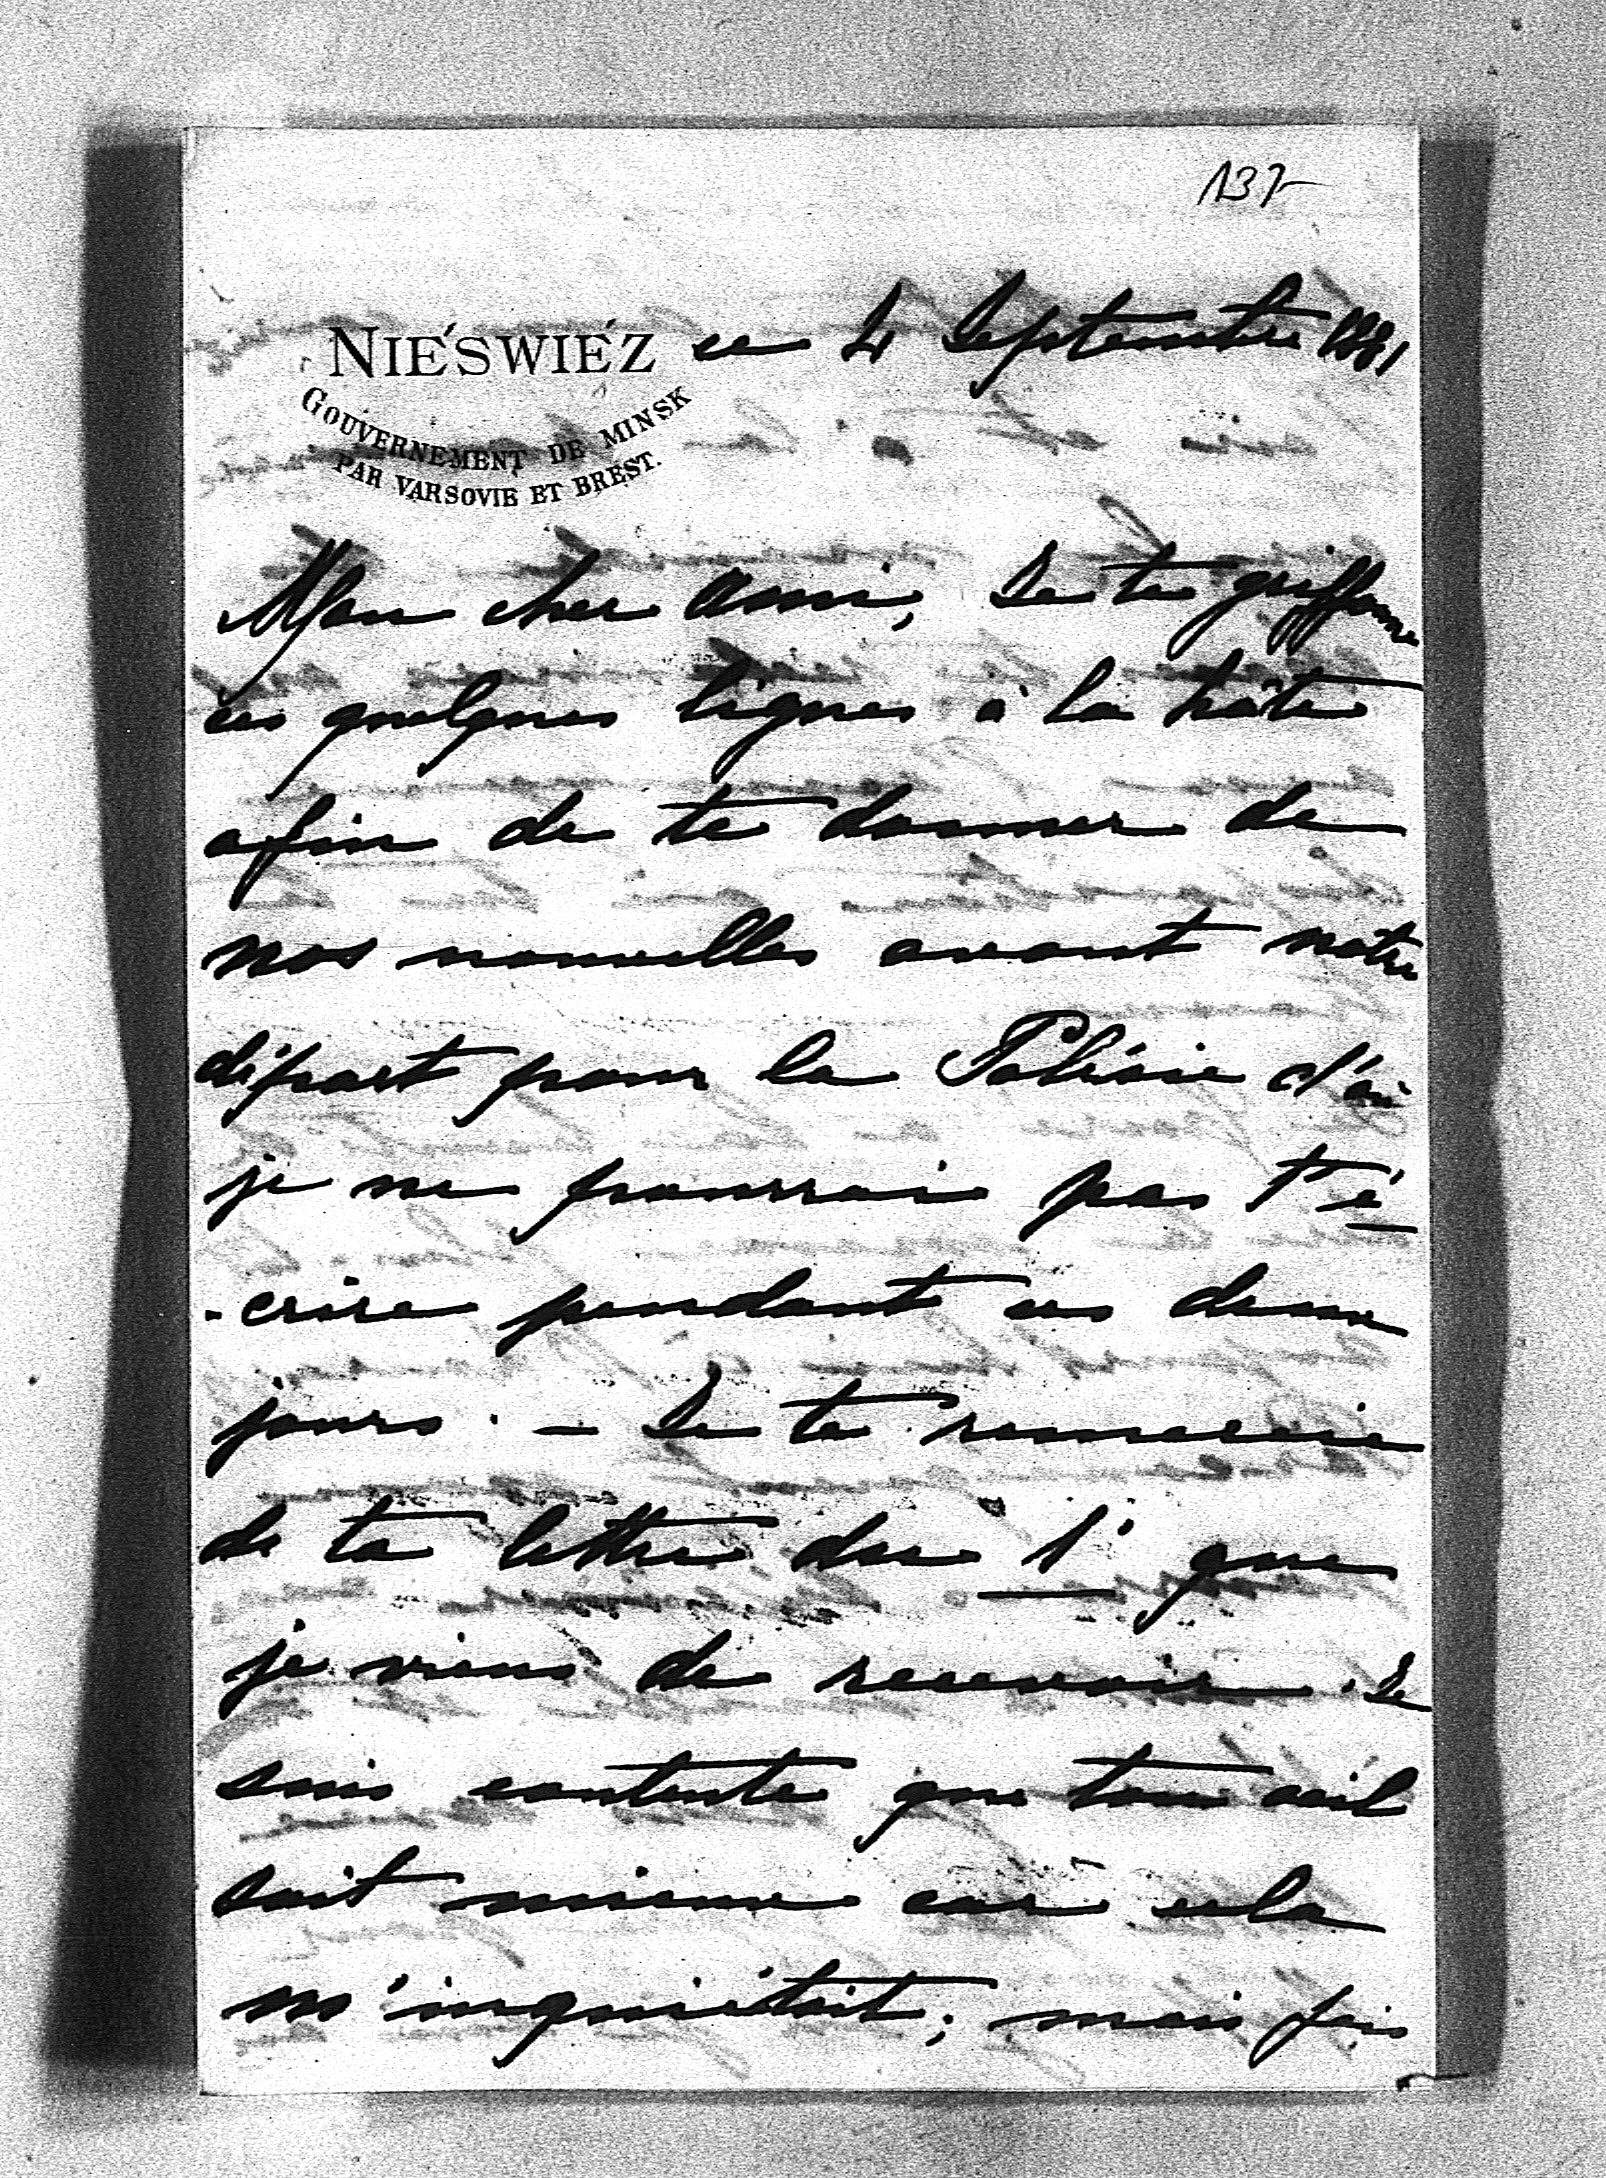 137
NIEŚWIEŹ ce 4 Septembre 1881
GOUVERNEMENT DE MINSK
PAR VARSOVIE ET BREST.
Mon cher Ami, Je te griffonne
ces quelques lignes à la hâte
afin de te donner de
nos nouvelles avant notre
départ pour la Polésie d'où
je ne pourrai pas t'é
-crire pendant ces deux
jours. — Je te remercie
de ta lettre du 1. que
je viens de recevoir. Je
suis contente que ton œil
soit mieux car cela
m'inquiétait; mais fais